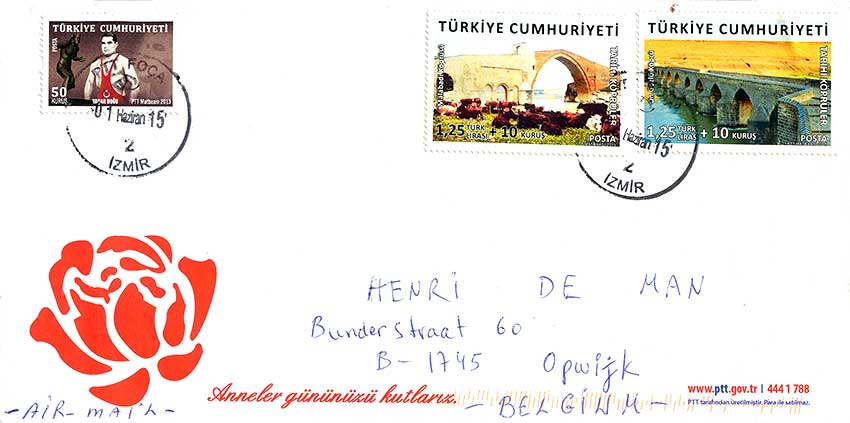 TÜRKİYE CUMHURİYETİ
POSTA
50
KURUŞ
YAŞAR DOĞU
PTT Matbaası 2013
FOÇA
01 Haziran 15
2
İZMİR
TÜRKİYE CUMHURİYETİ
Malabadi Köprüsü
TARİHİ KÖPRÜLER
1,25 TÜRK LİRASI + 10 KURUŞ
POSTA
TÜRKİYE CUMHURİYETİ
TARİHİ KÖPRÜLER
1,25 TÜRK LİRASI + 10 KURUŞ
POSTA
Haziran 15
2
İZMİR
HENRI DE MAN
Bunderstraat 60
B-1745 Opwijk
- BELGIUM -
- AIR-MAIL -
Anneler gününüzü kutlarız.
www.ptt.gov.tr | 444 1 788
PTT tarafından üretilmiştir. Para ile satılmaz.